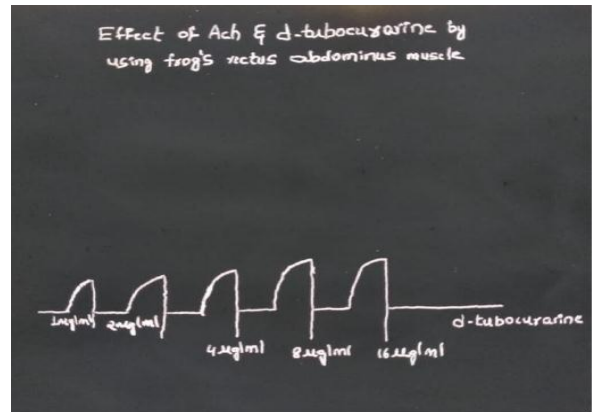 Effect of Ach & d-tubocurarine by
using frog's rectus abdominus muscle
1µg/ml 2µg/ml
4µg/ml 8µg/ml 16µg/ml
d-tubocurarine